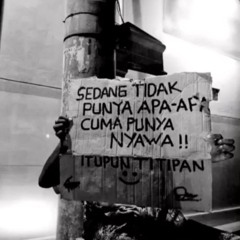 SEDANG TIDAK
PUNYA APA-APA
CUMA PUNYA
NYAWA !!
ITUPUN TITIPAN